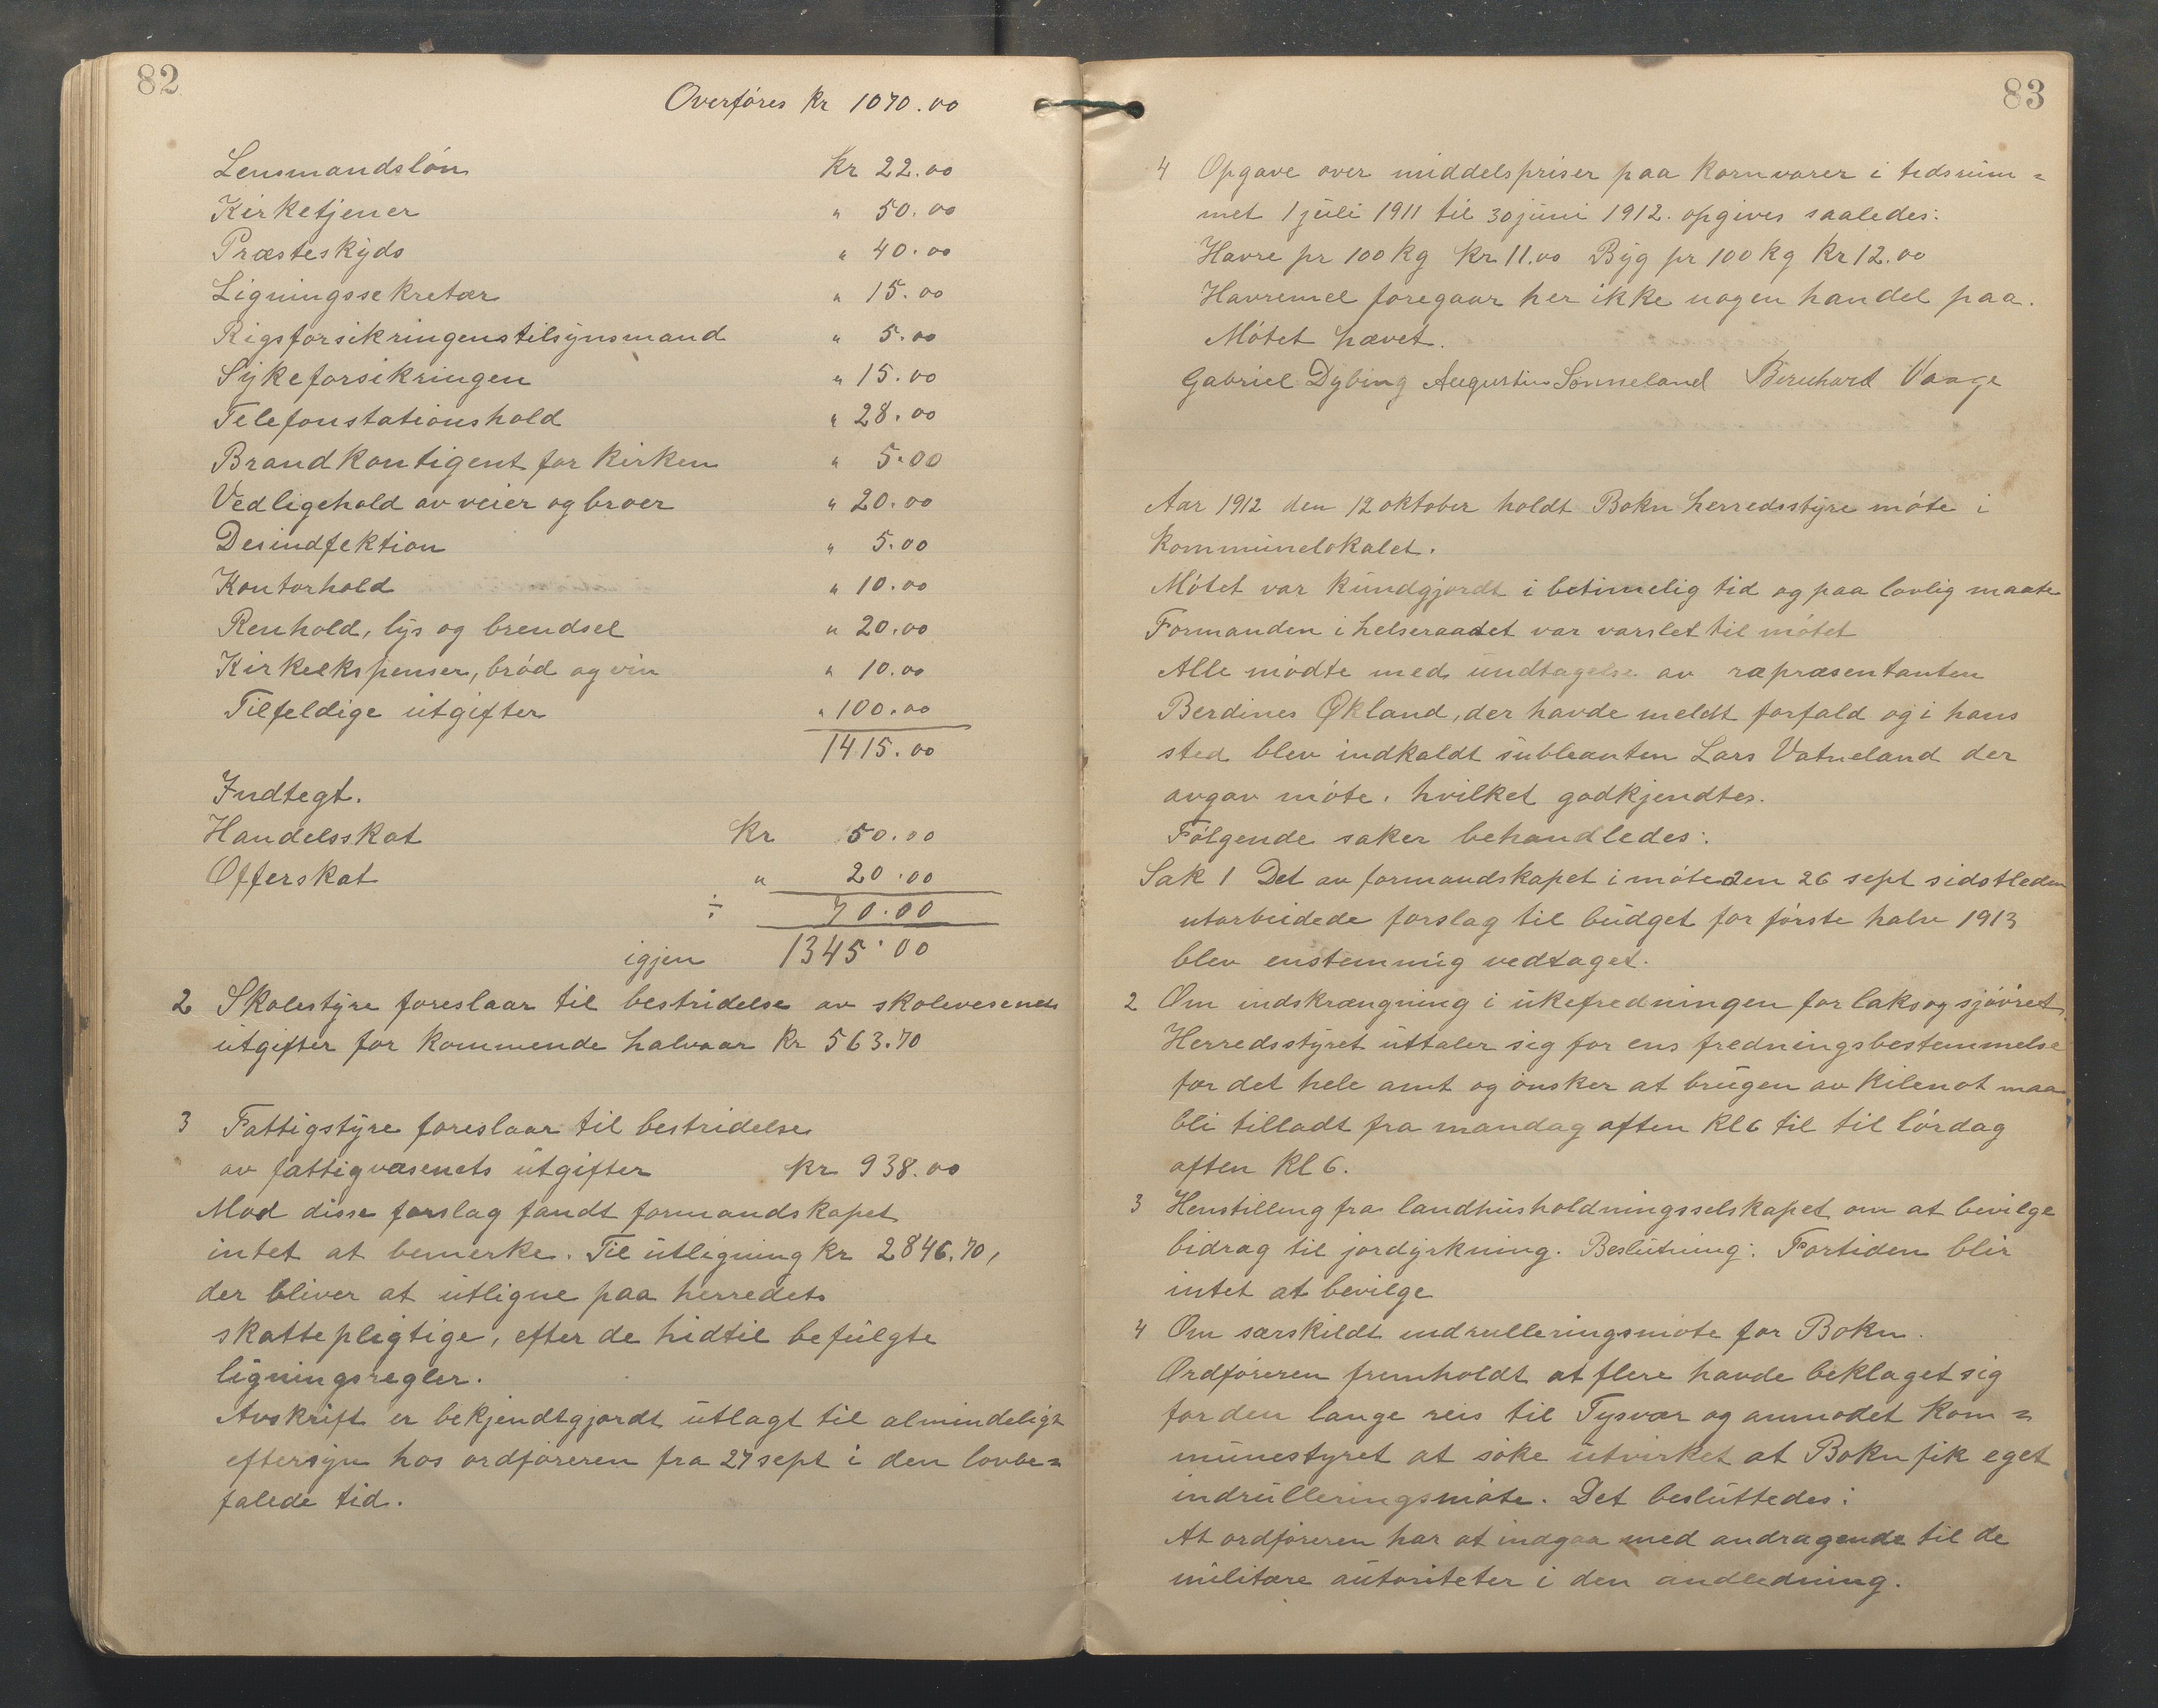 82
Overføres Kr 1070.00
Lensmandsløn Kr 22.00
Kirketjener " 50.00
Præsteskyds " 40.00
Ligningssekretær " 15.00
Rigsforsikringens tilsynsmand " 5.00
Sykeforsikringen " 15.00
Telefonstationshold " 28.00
Brandkontigent for kirken " 5.00
Vedligehold av veier og broer " 20.00
Desindfektion " 5.00
Kontorhold " 10.00
Renhold, lys og brendsel " 20.00
Kirkeekspenser, brød og vin " 10.00
Tilfeldige utgifter " 100.00
1415.00
Indtegt.
Handelsskat Kr 50.00
Offerskat " 20.00
÷ 70.00
igjen 1345.00
2 Skolestyre foreslaar til bestridelse av skolevesenets
utgifter for kommende halvaar Kr 563.70
3 Fattigstyre foreslaar til bestridelse
av fattigvæsenets utgifter Kr 938.00
Mod disse forslag fandt formandskapet
intet at bemerke. Til utligning Kr 2846.70,
der bliver at utligne paa herredets
skattepligtige, efter de hidtil befulgte
ligningsregler.
Avskrift er bekjendtgjordt utlagt til almindeligt
eftersyn hos ordføreren fra 27 sept i den lovbe=
falede tid.
83
4 Opgave over middelspriser paa kornvarer i tidsrum=
met 1 juli 1911 til 30 juni 1912. opgives saaledes:
Havre pr 100 Kg Kr 11.00 Byg pr 100 Kg Kr 12.00
Havremel foregaar her ikke nogen handel paa.
Møtet hævet.
Gabriel Dybing Augustinus Sønneland Bernhard Vaage
Aar 1912 den 12 oktober holdt Bokn herredsstyre møte i
kommunelokalet.
Møtet var kundgjordt i betimelig tid og paa lovlig maate
Formanden i helseraadet var varslet til møtet
Alle mødte med undtagelse av ræpræsentanten
Berdines Økland, der havde meldt forfald og i hans
sted blev indkaldt subleanten Lars Vatneland der
avgav møte. hvilket godkjendtes.
Følgende saker behandledes:
Sak 1 Det av formandskapet i møte den 26 sept sidstleden
utarbeidede forslag til budget for første halv 1913
blev enstemmig vedtaget.
2 Om indskrængning i ukefredningen for laks og sjøøret.
Herredsstyret uttaler sig for ens fredningsbestemmelse
for det hele amt og ønsker at brugen av kilenot maa
bli tilladt fra mandag aften Kl 6 til til lørdag
aften Kl 6.
3 Henstilling fra landhusholdningsselskapet om at bevilge
bidrag til jordyrkning. Beslutning: Fortiden blir
intet at bevilge
4 Om særskildt indrulleringsmøte for Bokn.
Ordføreren fremholdt at flere havde beklaget sig
for den lange reis til Tysvær og anmodet kom=
munestyret at søke utvirket at Bokn fik eget
indrulleringsmøte. Det besluttedes:
At ordføreren har at indgaa med andragende til de
militære autoriteter i den andledning.